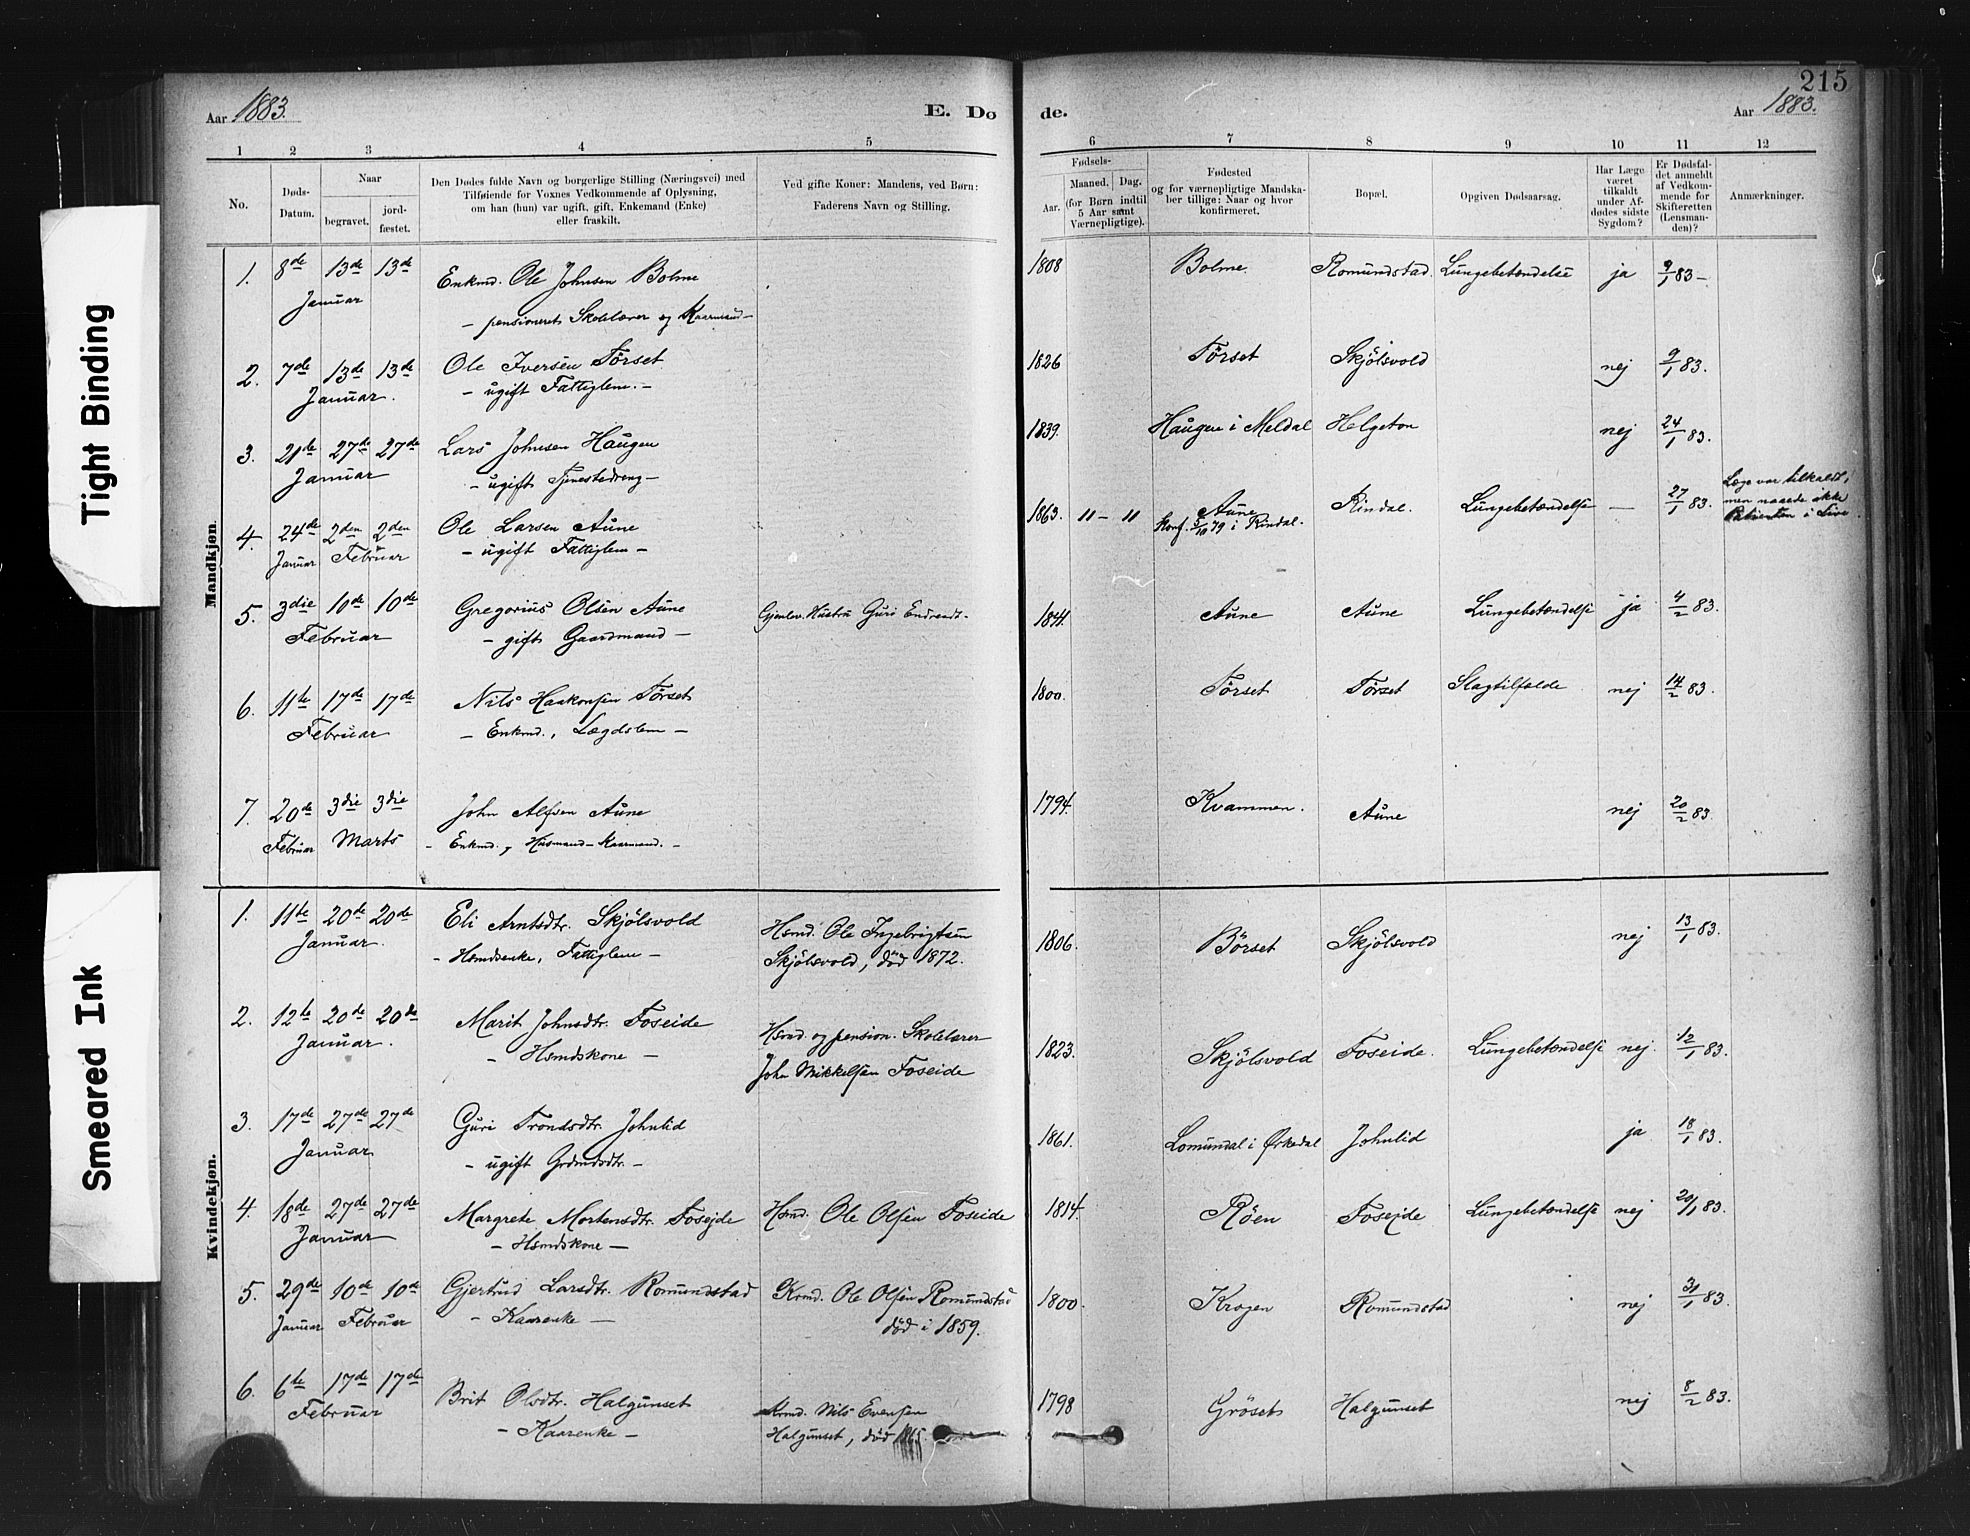 215
Aar 1883.
E. Do
de.
Aar 1883.
1 2 3 4 5 6 7 8 9 10 11 12
No.
Døds-Datum.
Naar
begravet.
jord-fæstet.
Den Dødes fulde Navn og borgerlige Stilling (Næringsvei) med
Tilføiende for Voxnes Vedkommende af Oplysning,
om han (hun) var ugift, gift, Enkemand (Enke)
eller fraskilt.
Ved gifte Koner: Mandens, ved Børn:
Faderens Navn og Stilling.
Fødsels-
Aar.
Maaned. Dag.
(for Børn indtil
5 Aar samt
Værnepligtige).
Fødested
og for værnepligtige Mandska-
ber tillige: Naar og hvor
konfirmeret.
Bopæl.
Opgiven Dødsaarsag.
Har Læge
været
tilkaldt
under Af-
dødes sidste
Sygdom?
Er Dødsfal-
det anmeldt
af Vedkom-
mende for
Skifteretten
(Lensman-
den)?
Anmærkninger.
Tight Binding
Smeared Ink
Mandkjøn.
1. 8de 13de 13de Enkmd. Ole Johnsen Bolme 1808 Bolme. Romundstad Lungebetændelse ja 9/1 83 –
Januar – pensioneret Skolelærer og Kaarmand –
2. 7de 13de 13de Ole Iversen Tørset 1826 Tørset Skjölsvold nej 9/1 83.
Januar. – ugift Fattiglem. –
3. 21de 27de 27de Lars Johnsen Haugen 1839. Haugen i Meldal Helgeton nej 24/1 83.
Januar – ugift Tjenestedreng –
4. 24de 2den 2den Ole Larsen Aune 1863. 11 – 11 Aune Rindal. Lungebetændelse – 27/1 83. Læge var tilkaldt,
Januar Februar – ugift Fattiglem – Konf. 5/10 79 i Rindal. men naaede ikke
Patienten i Live.
5. 3die 10de 10de Gregorius Olsen Aune Gjenlev. Hustru Guri Endresdt. 1844. Aune Aune Lungebetændelse ja 4/2 83.
Februar – gift Gaardmand –
6. 11te 17de 17de Nils Haakonsen Tørset 1800. Tørset Tørset Slagtilfælde nej 14/2 83.
Februar – Enkmd., Lægdslem –
7. 20de 3die 3die John Alfsen Aune 1794. Kvammen. Aune nej 20/2 83.
Februar Marts – Enkmd., Husmand – Kaarmand. –
Kvindekjøn.
1. 11te 20de 20de Eli Arntsdtr. Skjölsvold Hsmd. Ole Ingebrigtsen 1806. Börset Skjölsvold nej 13/1 83.
Januar. – Hsmdsenke, Fattiglem – Skjölsvold, död 1872.
2. 12te 20de 20de Marit Johnsdtr. Foseide Hsmd og pension. Skolelærer 1823. Skjölsvold Foseide. Lungebetændelse nej. 12/1 83.
Januar. – Hsmdskone – John Mikkelsen Foseide
3. 17de 27de 27de Guri Trondsdtr. Johnlid 1861. Lomundal i Ørkedal Johnlid ja 18/1 83.
Januar – ugift Grdmdsdtr. –
4. 18de 27de 27de Margrete Mortensdtr. Foseide Hsmd. Ole Olsen Foseide 1814. Röen Foseide Lungebetændelse nej 20/1 83.
Januar – Hsmdskone –
5. 29de 10de 10de Gjertrud Larsdtr. Romundstad Krmd. Ole Olsen Romundstad 1800. Krogen Romundstad nej 31/1 83.
Januar Februar – Kaarenke – död i 1859.
6. 6te 17de 17de Brit Olsdtr. Halgunset Krmd. Nils Evensen 1798 Gröset Halgunset nej 8/2 83.
Februar – Kaarenke – Halgunset, död 1865.